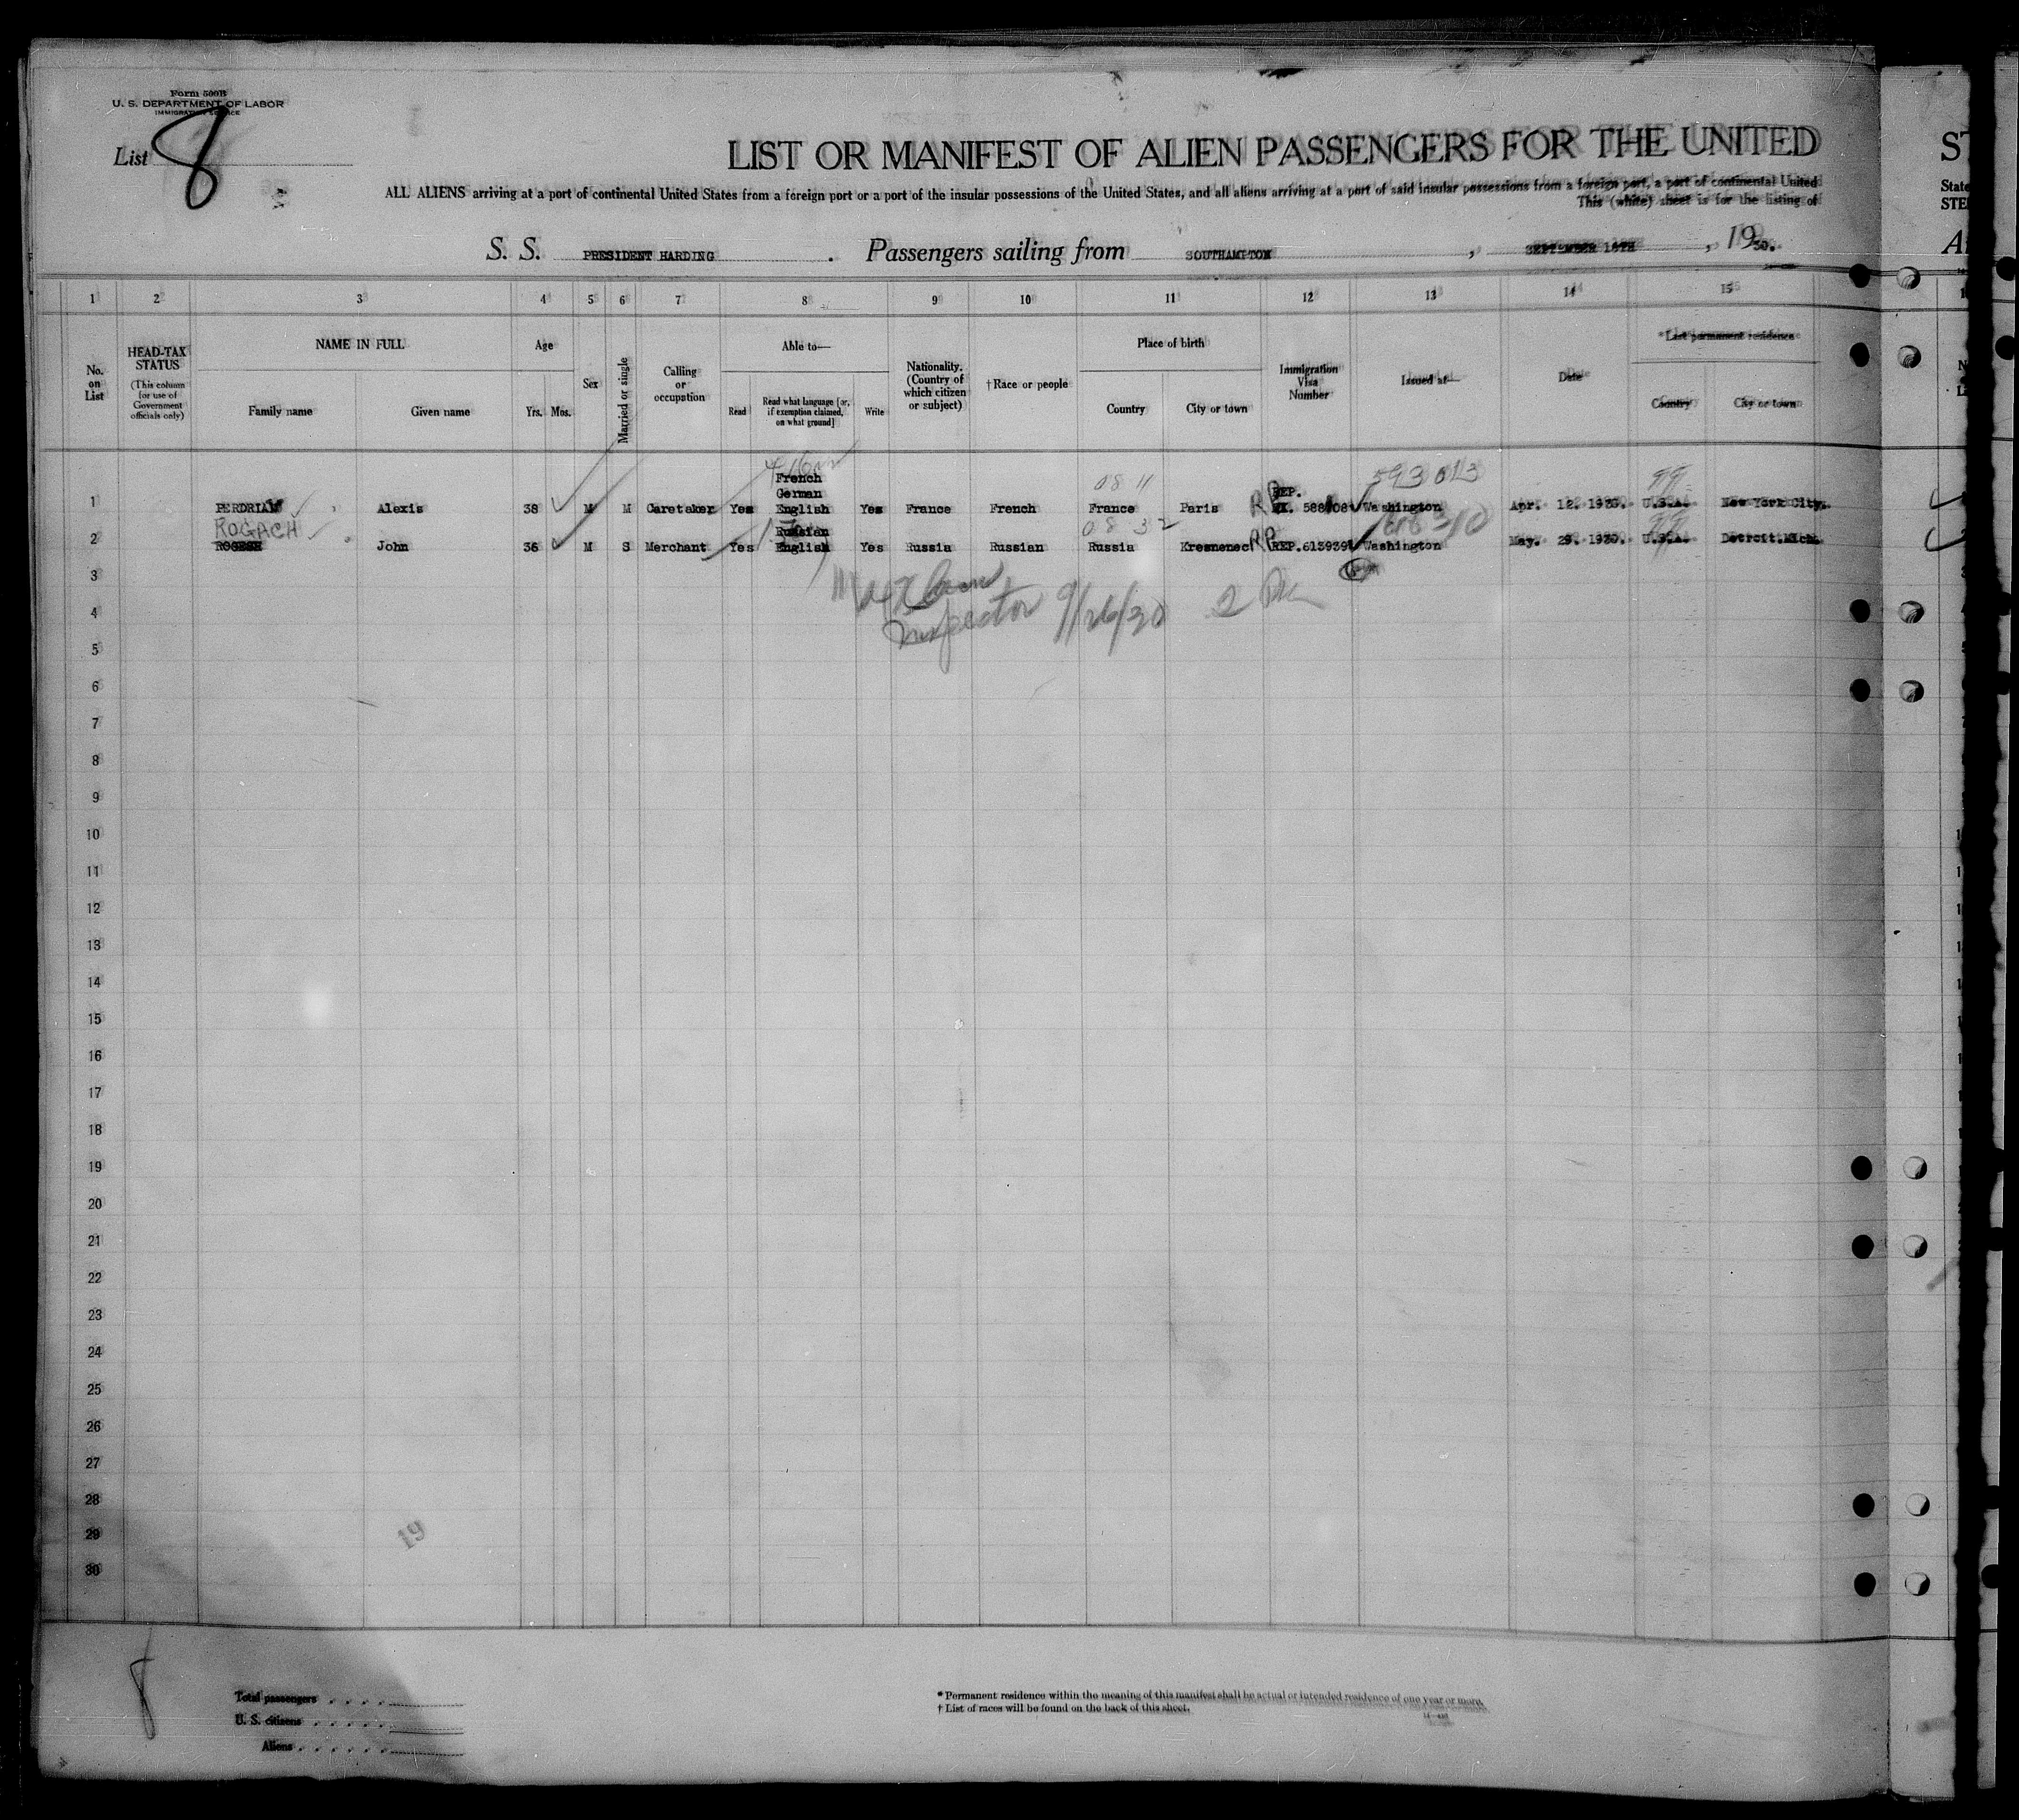 Form 500B
U. S. DEPARTMENT OF LABOR
IMMIGRATION SERVICE
List 8
LIST OR MANIFEST OF ALIEN PASSENGERS FOR THE UNITED
ALL ALIENS arriving at a port of continental United States from a foreign port or a port of the insular possessions of the United States, and all aliens arriving at a port of said insular possessions from a foreign port, a port of continental United
This (white) sheet is for the listing of
S. S. PRESIDENT HARDING . Passengers sailing from SOUTHAMPTON , SEPTEMBER , 1930.
1 2 3 4 5 6 7 8 9 10 11 12 13 14 15
No. on List
HEAD-TAX STATUS
(This column for use of Government officials only)
NAME IN FULL
Family name Given name
Age
Yrs. Mos.
Sex
Married or single
Calling or occupation
Able to—
Read
Read what language [or, if exemption claimed, on what ground]
Write
Nationality. (Country of which citizen or subject)
†Race or people
Place of birth
Country City or town
Immigration Visa Number
Issued at—
Date
*Last permanent residence
Country City or town
08 11 593013 99
French
German REP.
1 PERDRIAU Alexis 38 M M Caretaker Yes English Yes France French France Paris RP Washington Apr. 12. 1930. U.S.A. New York City.
ROGACH Russian 08 32 99
2 John 36 M S Merchant Yes English Yes Russia Russian Russia Kresnenec RP REP.613939 Washington May. 29. 1930. U.S.A. Detroit.Mich.
3
4 Inspector 9/26/30
5
6
7
8
9
10
11
12
13
14
15
16
17
18
19
20
21
22
23
24
25
26
27
28
29
30
19
8
Total passengers . . . .
U. S. citizens . . . . .
Aliens . . . . . .
* Permanent residence within the meaning of this manifest shall be actual or intended residence of one year or more.
† List of races will be found on the back of this sheet.